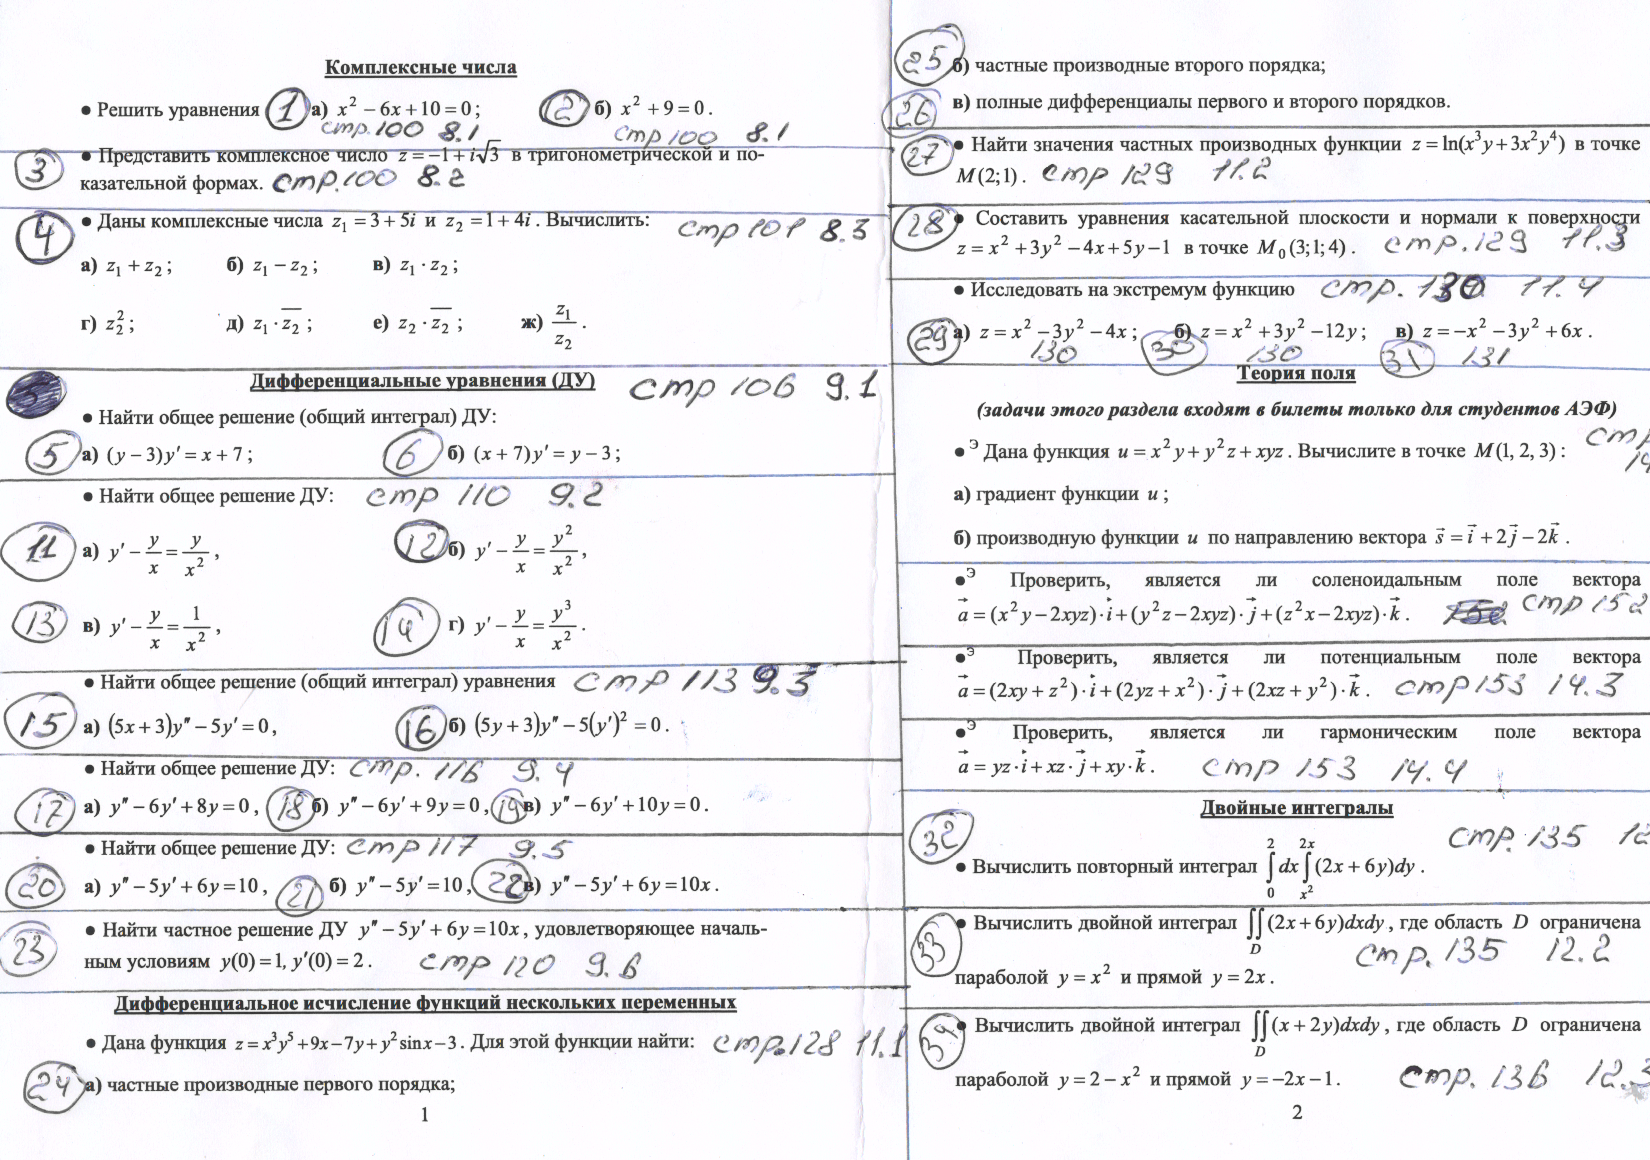 Комплексные числа
● Решить уравнения 1 а) x² − 6x + 10 = 0; 2 б) x² + 9 = 0.
стр. 100 8.1 стр 100 8.1
3 ● Представить комплексное число z = −1 + i√3 в тригонометрической и по-
казательной формах. стр. 100 8.2
4 ● Даны комплексные числа z₁ = 3 + 5i и z₂ = 1 + 4i. Вычислить: стр 101 8.3
а) z₁ + z₂; б) z₁ − z₂; в) z₁ · z₂;
г) z₂²; д) z₁ · z̅₂; е) z₂ · z̅₂; ж) z₁/z₂.
Дифференциальные уравнения (ДУ) стр 106 9.1
● Найти общее решение (общий интеграл) ДУ:
5 а) (y − 3)y′ = x + 7; 6 б) (x + 7)y′ = y − 3;
● Найти общее решение ДУ: стр 110 9.2
11 а) y′ − y/x = y/x², 12 б) y′ − y/x = y²/x²,
13 в) y′ − y/x = 1/x², 14 г) y′ − y/x = y³/x².
● Найти общее решение (общий интеграл) уравнения стр 113 9.3
15 а) (5x + 3)y″ − 5y′ = 0, 16 б) (5y + 3)y″ − 5(y′)² = 0.
● Найти общее решение ДУ: стр. 116 9.4
17 а) y″ − 6y′ + 8y = 0, 18 б) y″ − 6y′ + 9y = 0, 19 в) y″ − 6y′ + 10y = 0.
● Найти общее решение ДУ: стр 117 9.5
20 а) y″ − 5y′ + 6y = 10, 21 б) y″ − 5y′ = 10, 22 в) y″ − 5y′ + 6y = 10x.
23 ● Найти частное решение ДУ y″ − 5y′ + 6y = 10x, удовлетворяющее началь-
ным условиям y(0) = 1, y′(0) = 2. стр 120 9.6
Дифференциальное исчисление функций нескольких переменных
● Дана функция z = x³y⁵ + 9x − 7y + y² sin x − 3. Для этой функции найти: стр. 128 11.1
24 а) частные производные первого порядка;
1
25 б) частные производные второго порядка;
26 в) полные дифференциалы первого и второго порядков.
27 ● Найти значения частных производных функции z = ln(x³y + 3x²y⁴) в точке
M(2;1). стр 129 11.2
28 ● Составить уравнения касательной плоскости и нормали к поверхности
z = x² + 3y² − 4x + 5y − 1 в точке M₀(3;1;4). стр. 129 11.3
● Исследовать на экстремум функцию стр. 130 11.4
29 а) z = x² − 3y² − 4x; 30 б) z = x² + 3y² − 12y; в) z = −x² − 3y² + 6x.
130 130 31 131
Теория поля
(задачи этого раздела входят в билеты только для студентов АЭФ)
●Э Дана функция u = x²y + y²z + xyz. Вычислите в точке M(1, 2, 3):
а) градиент функции u;
б) производную функции u по направлению вектора s⃗ = i⃗ + 2j⃗ − 2k⃗.
●Э Проверить, является ли соленоидальным поле вектора
a⃗ = (x²y − 2xyz)·i⃗ + (y²z − 2xyz)·j⃗ + (z²x − 2xyz)·k⃗. стр 152
●Э Проверить, является ли потенциальным поле вектора
a⃗ = (2xy + z²)·i⃗ + (2yz + x²)·j⃗ + (2xz + y²)·k⃗. стр 153 14.3
●Э Проверить, является ли гармоническим поле вектора
a⃗ = yz·i⃗ + xz·j⃗ + xy·k⃗. стр 153 14.4
Двойные интегралы
32 стр. 135
● Вычислить повторный интеграл ∫₀² dx ∫ₓ²²ˣ (2x + 6y)dy.
33 ● Вычислить двойной интеграл ∬_D (2x + 6y)dxdy, где область D ограничена
стр. 135 12.2
параболой y = x² и прямой y = 2x.
34 ● Вычислить двойной интеграл ∬_D (x + 2y)dxdy, где область D ограничена
параболой y = 2 − x² и прямой y = −2x − 1. стр. 136 12.3
2